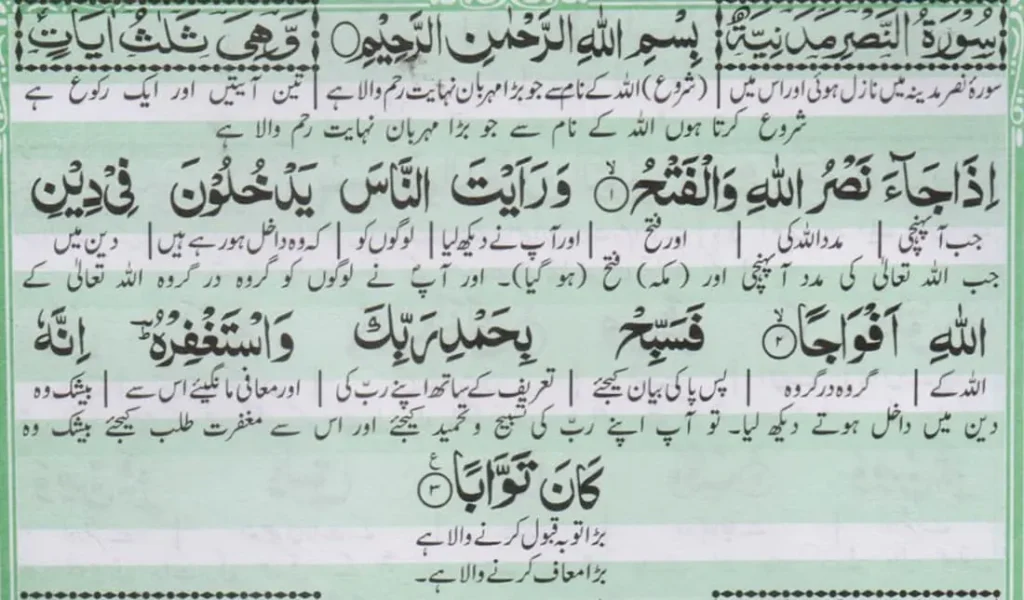 سُوْرَةُ النَّصْرِ مَدَنِيَّةٌ بِسْمِ اللهِ الرَّحْمٰنِ الرَّحِيْمِ وَّهِيَ ثَلٰثُ اٰيَاتٍ
سورۂ نصر مدینہ میں نازل ہوئی اور اس میں | (شروع) اللہ کے نام سے جو بڑا مہربان نہایت رحم والا ہے | تین آیتیں اور ایک رکوع ہے
شروع کرتا ہوں اللہ کے نام سے جو بڑا مہربان نہایت رحم والا ہے
اِذَا جَآءَ نَصْرُ اللهِ وَالْفَتْحُ ۙ﴿۱﴾ وَرَاَيْتَ النَّاسَ يَدْخُلُوْنَ فِيْ دِيْنِ
جب آ پہنچی | مدد اللہ کی | اور فتح | اور آپ نے دیکھ لیا | لوگوں کو | کہ وہ داخل ہو رہے ہیں | دین میں
جب اللہ تعالیٰ کی مدد آ پہنچی اور (مکہ) فتح (ہو گیا)۔ اور آپؐ نے لوگوں کو گروہ در گروہ اللہ تعالیٰ کے
اللهِ اَفْوَاجًا ۙ﴿۲﴾ فَسَبِّحْ بِحَمْدِ رَبِّكَ وَاسْتَغْفِرْهُ ؕ اِنَّهٗ
اللہ کے | گروہ در گروہ | پس پاکی بیان کیجئے | تعریف کے ساتھ اپنے ربّ کی | اور معافی مانگیئے اس سے | بیشک وہ
دین میں داخل ہوتے دیکھ لیا۔ تو آپ اپنے ربّ کی تسبیح و تحمید کیجئے اور اس سے مغفرت طلب کیجئے بیشک وہ
كَانَ تَوَّابًا ﴿۳﴾ ع
بڑا توبہ قبول کرنے والا ہے
بڑا معاف کرنے والا ہے۔